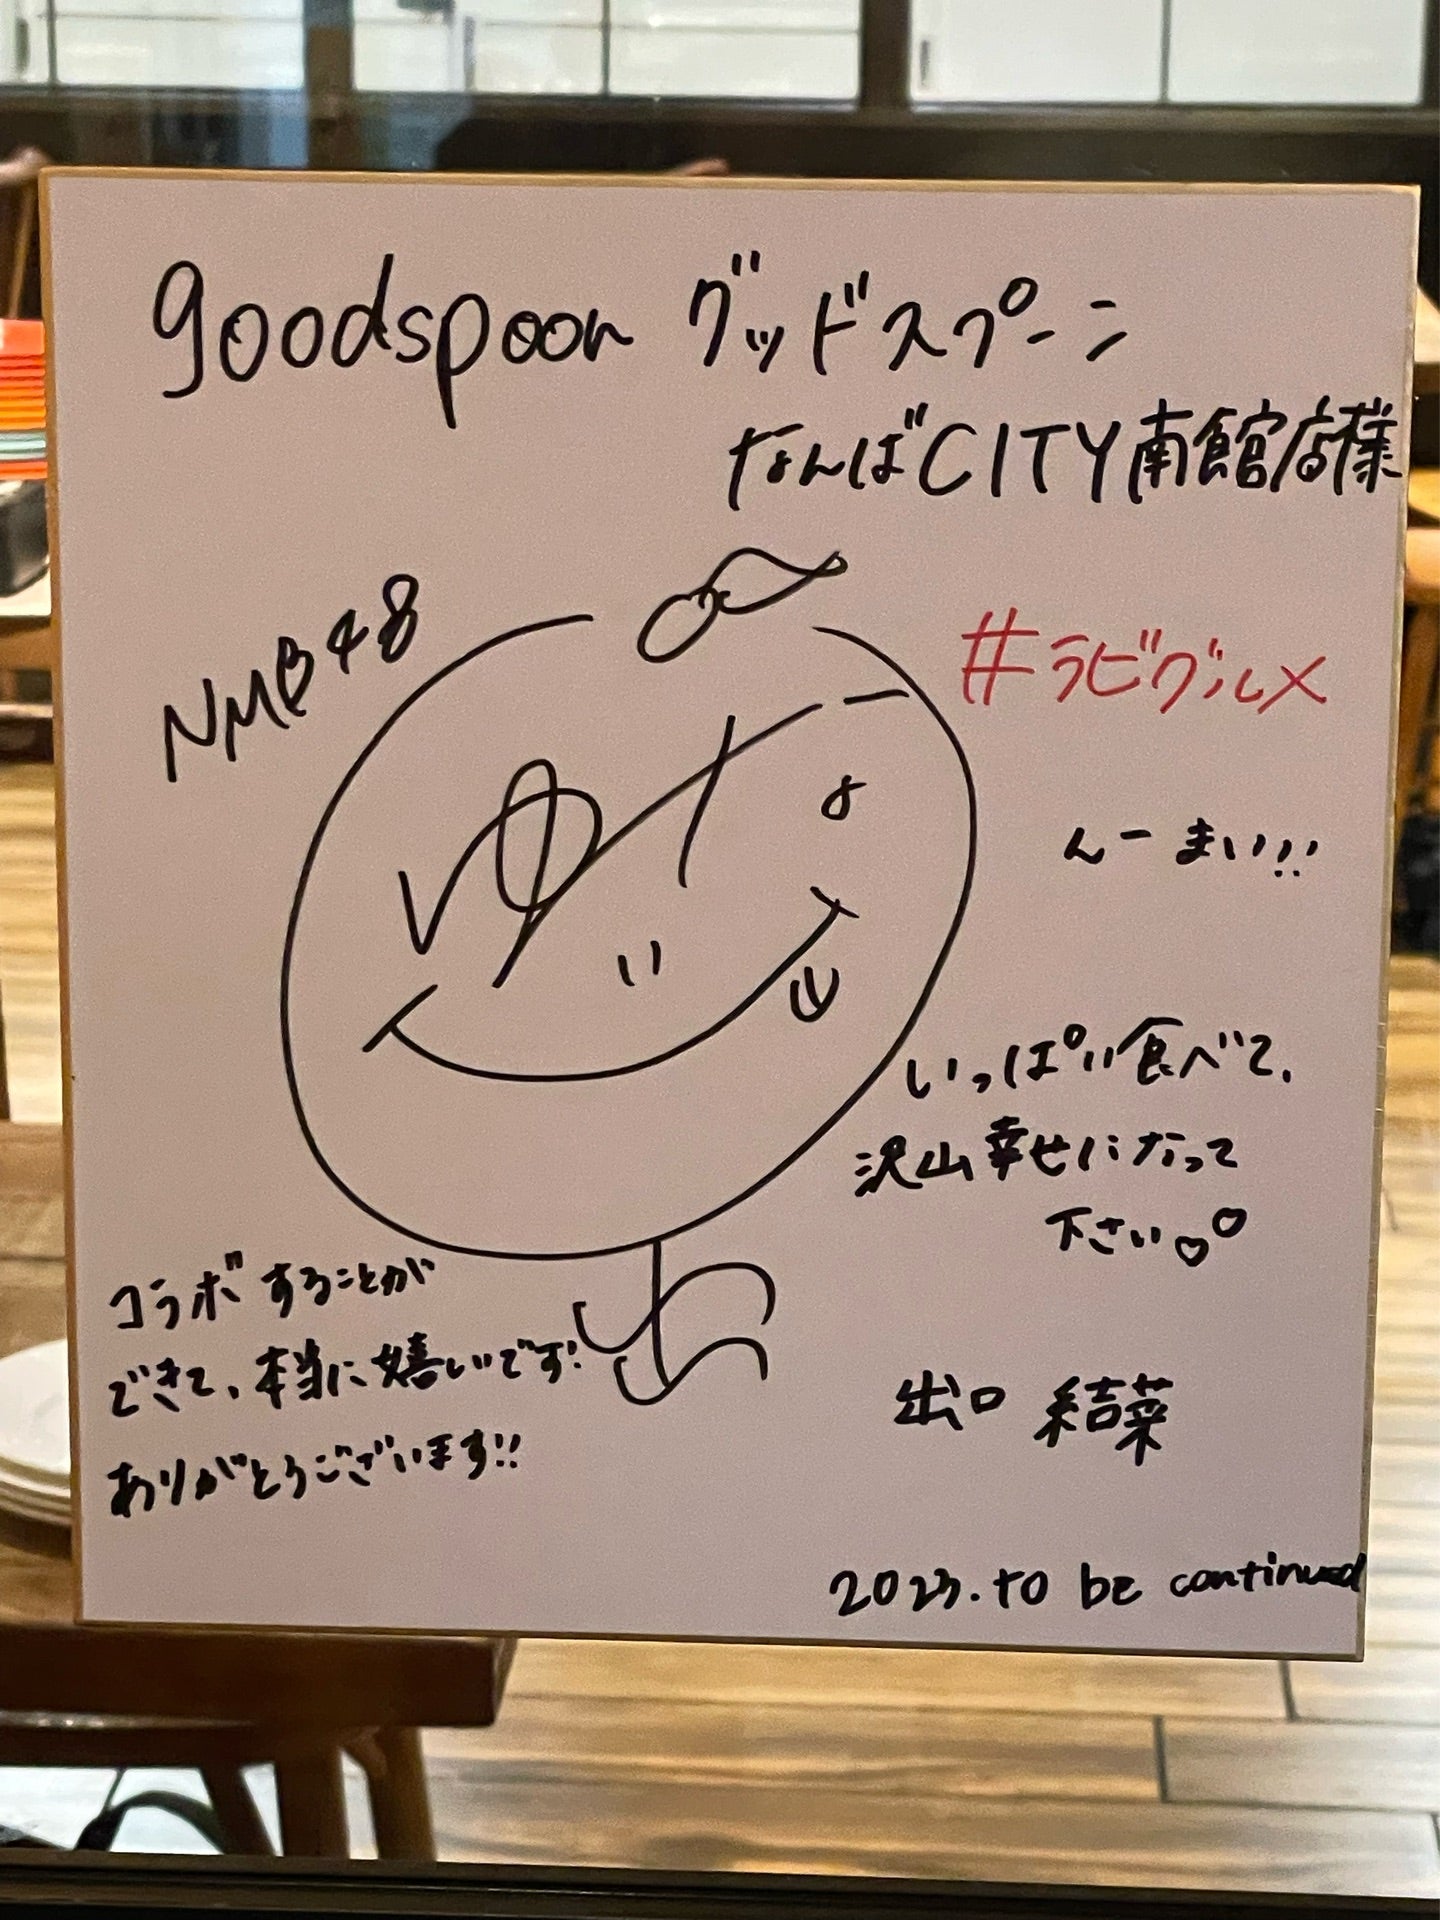 goodspoon グッドスプーン
なんばCITY南館店様
NMB48
#ラビグルメ
んーまい!!
いっぱい食べて、
沢山幸せになって
下さい
コラボすることが
できて、本当に嬉しいです!
ありがとうございます!!
出口 結菜
2023. to be continued